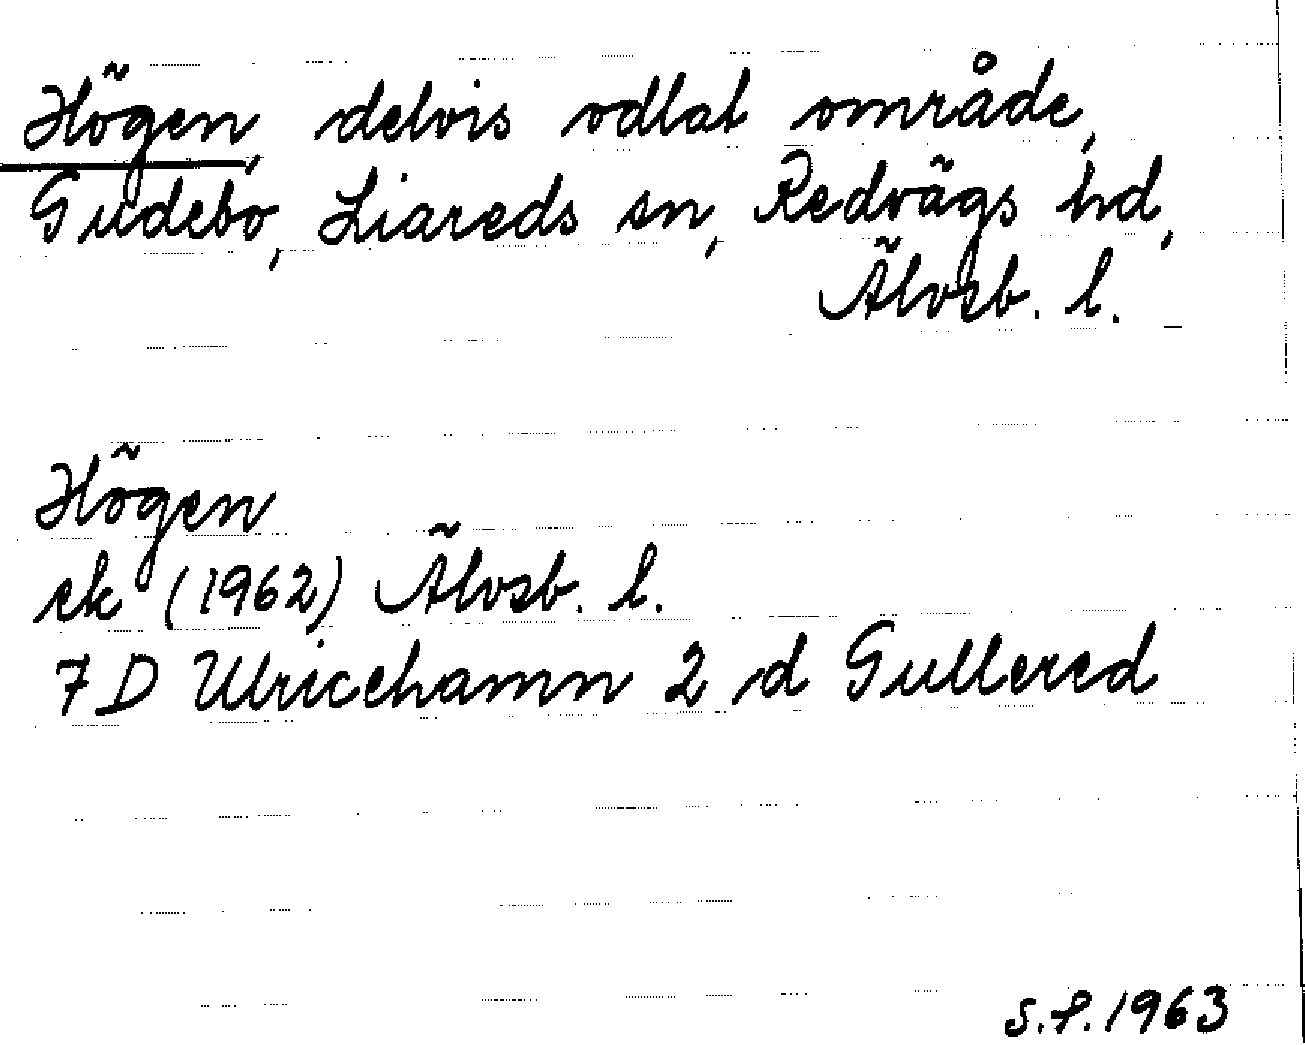 Högen, delvis odlat område,
Gudebo, Liareds sn, Redvägs hd,
Älvsb. l.
Högen
ek (1962) Älvsb. l.
7 D Ulricehamn 2 d Gullered
S.F. 1963